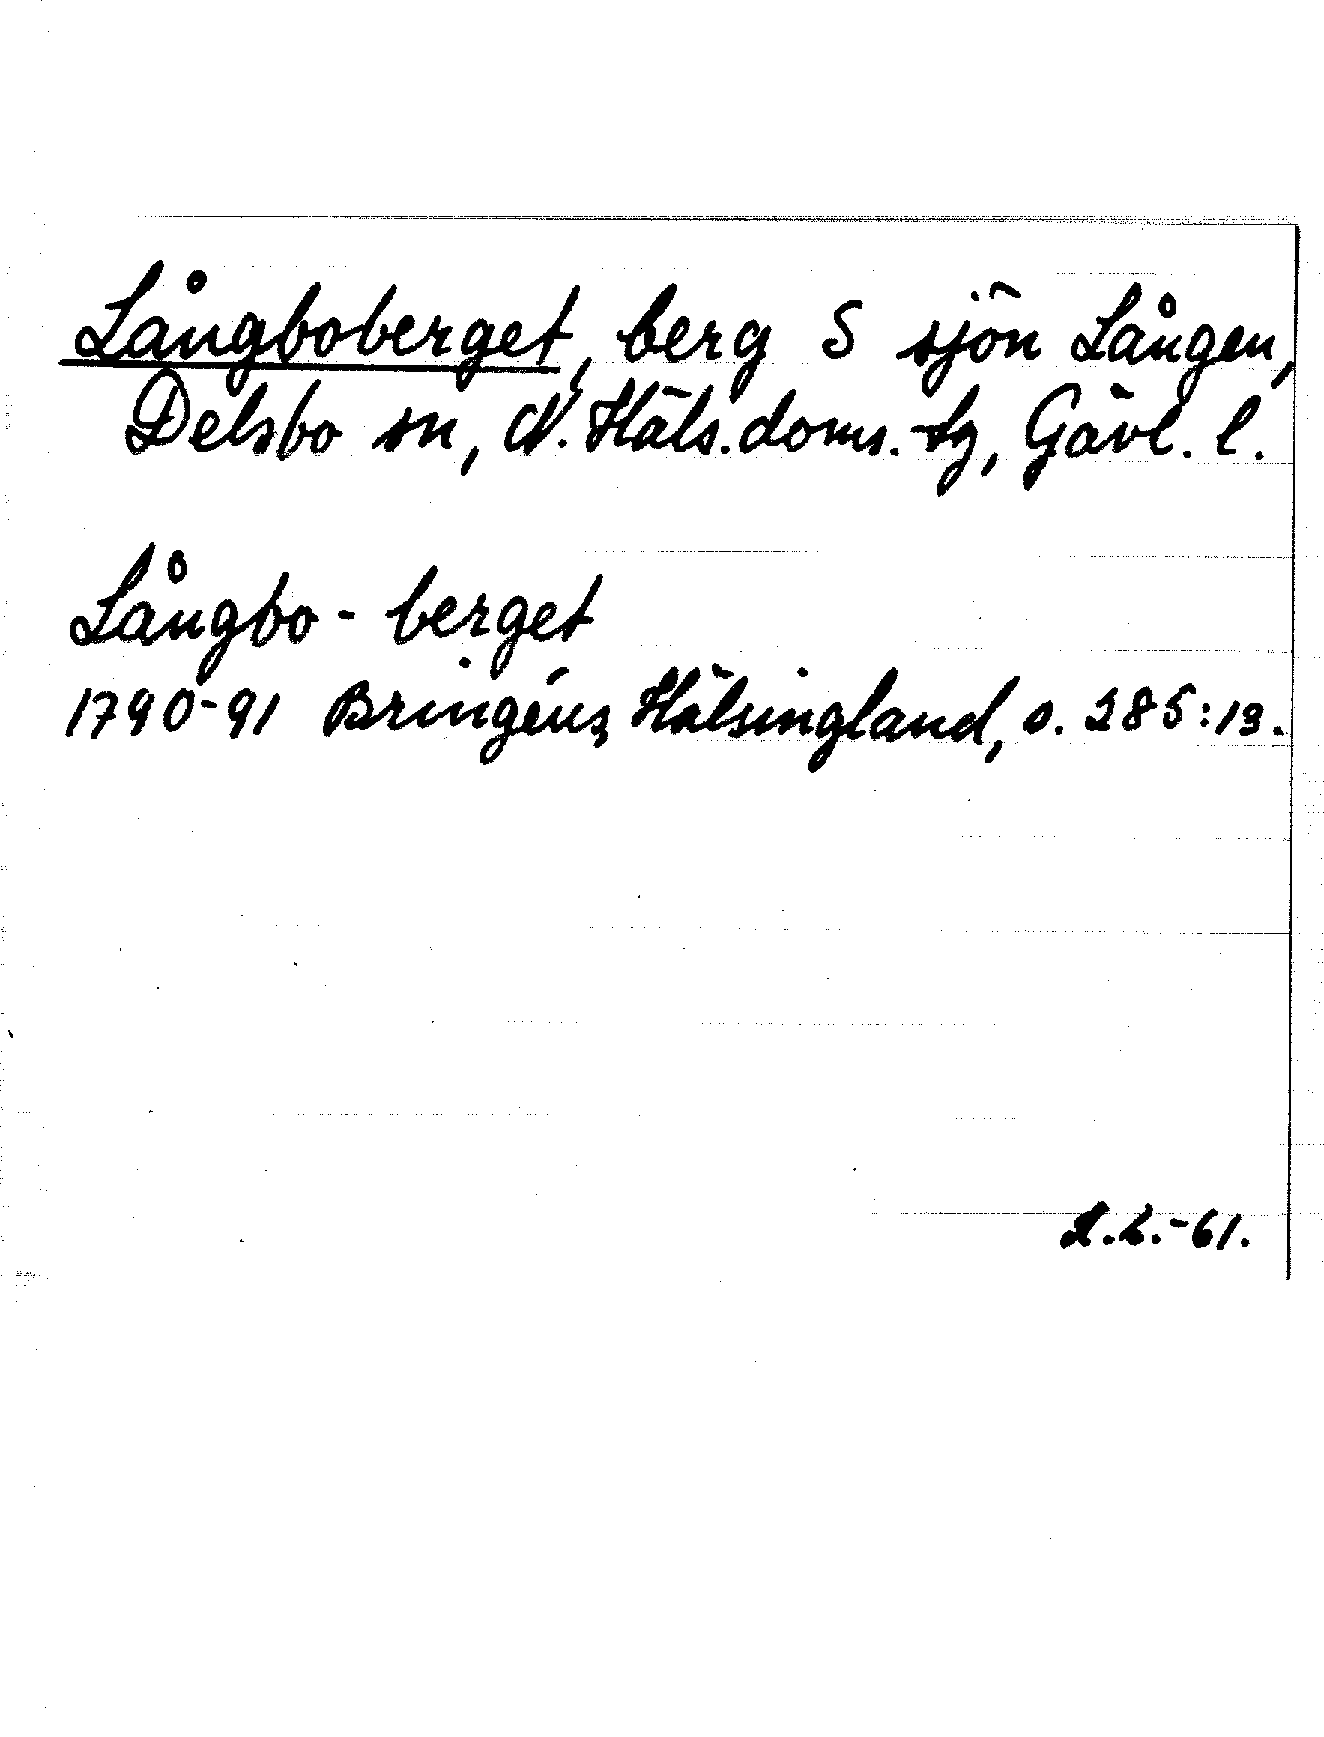 Långboberget, berg S sjön Lången,
Delsbo sn, N. Häls. doms.-sg, Gävl. l.
Långbo - berget
1790-91 Bringéus, Hälsingland, s. 285:19.
L.-61.